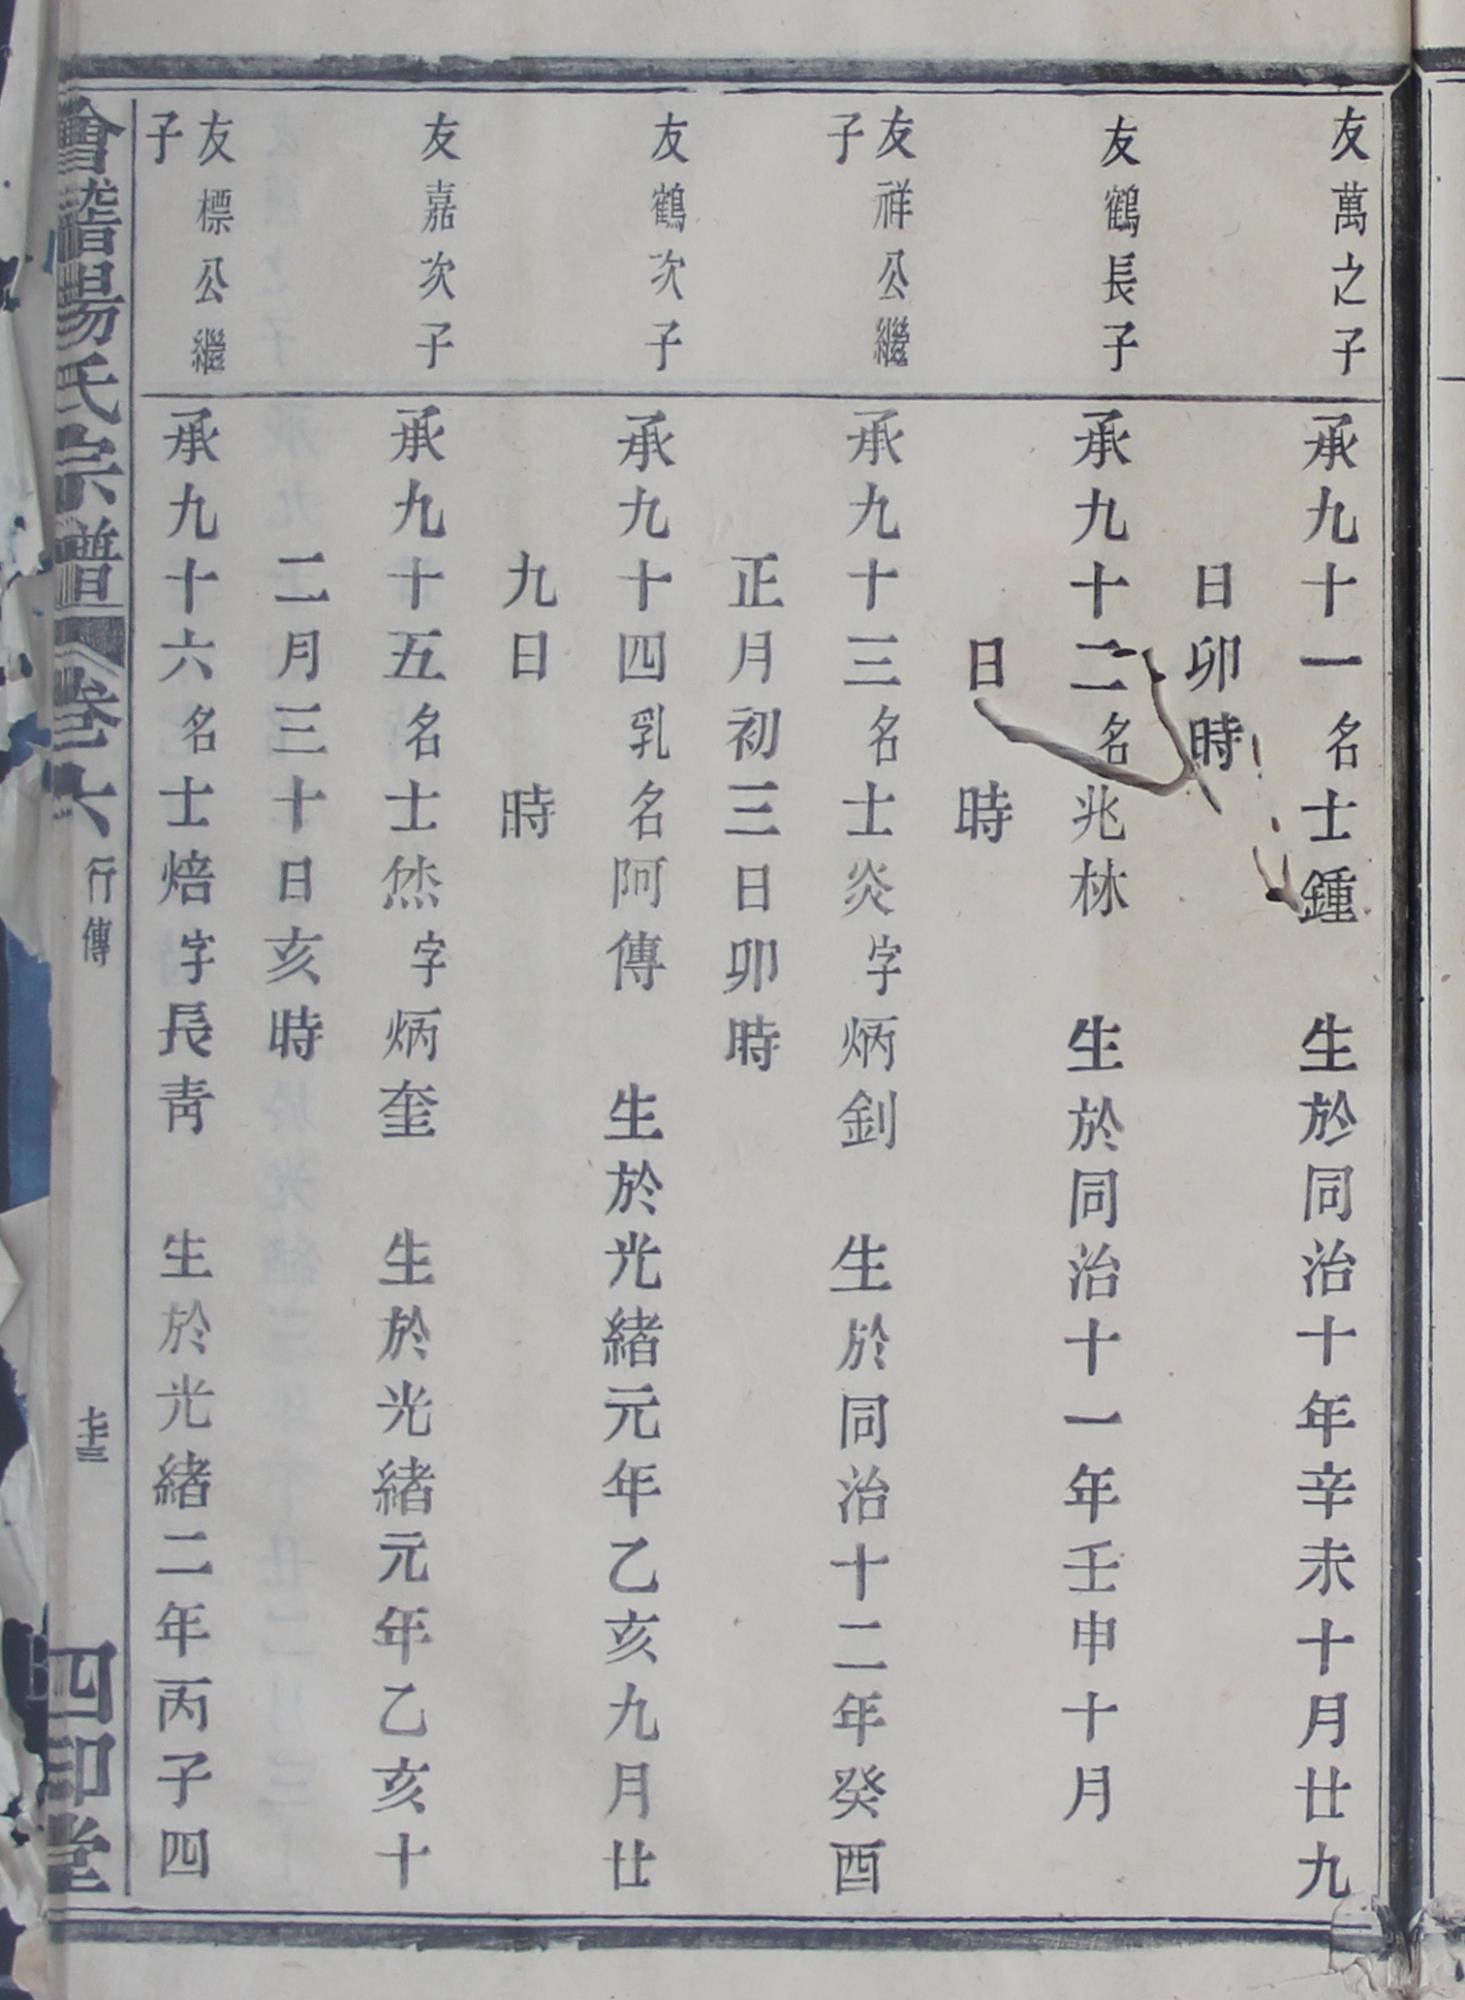 友萬之子
承九十一名士鍾 生於同治十年辛未十月廿九
日卯時
友鶴長子
承九十二名兆林 生於同治十一年壬申十月
日 時
友祥公繼
子
承九十三名士炎字炳釗 生於同治十二年癸酉
正月初三日卯時
友鶴次子
承九十四乳名阿傳 生於光緒元年乙亥九月廿
九日 時
友嘉次子
承九十五名士烋字炳奎 生於光緒元年乙亥十
二月三十日亥時
友標公繼
子
承九十六名士焙字長青 生於光緒二年丙子四
會稽楊氏宗譜 卷六 行傳 七十三 四印堂